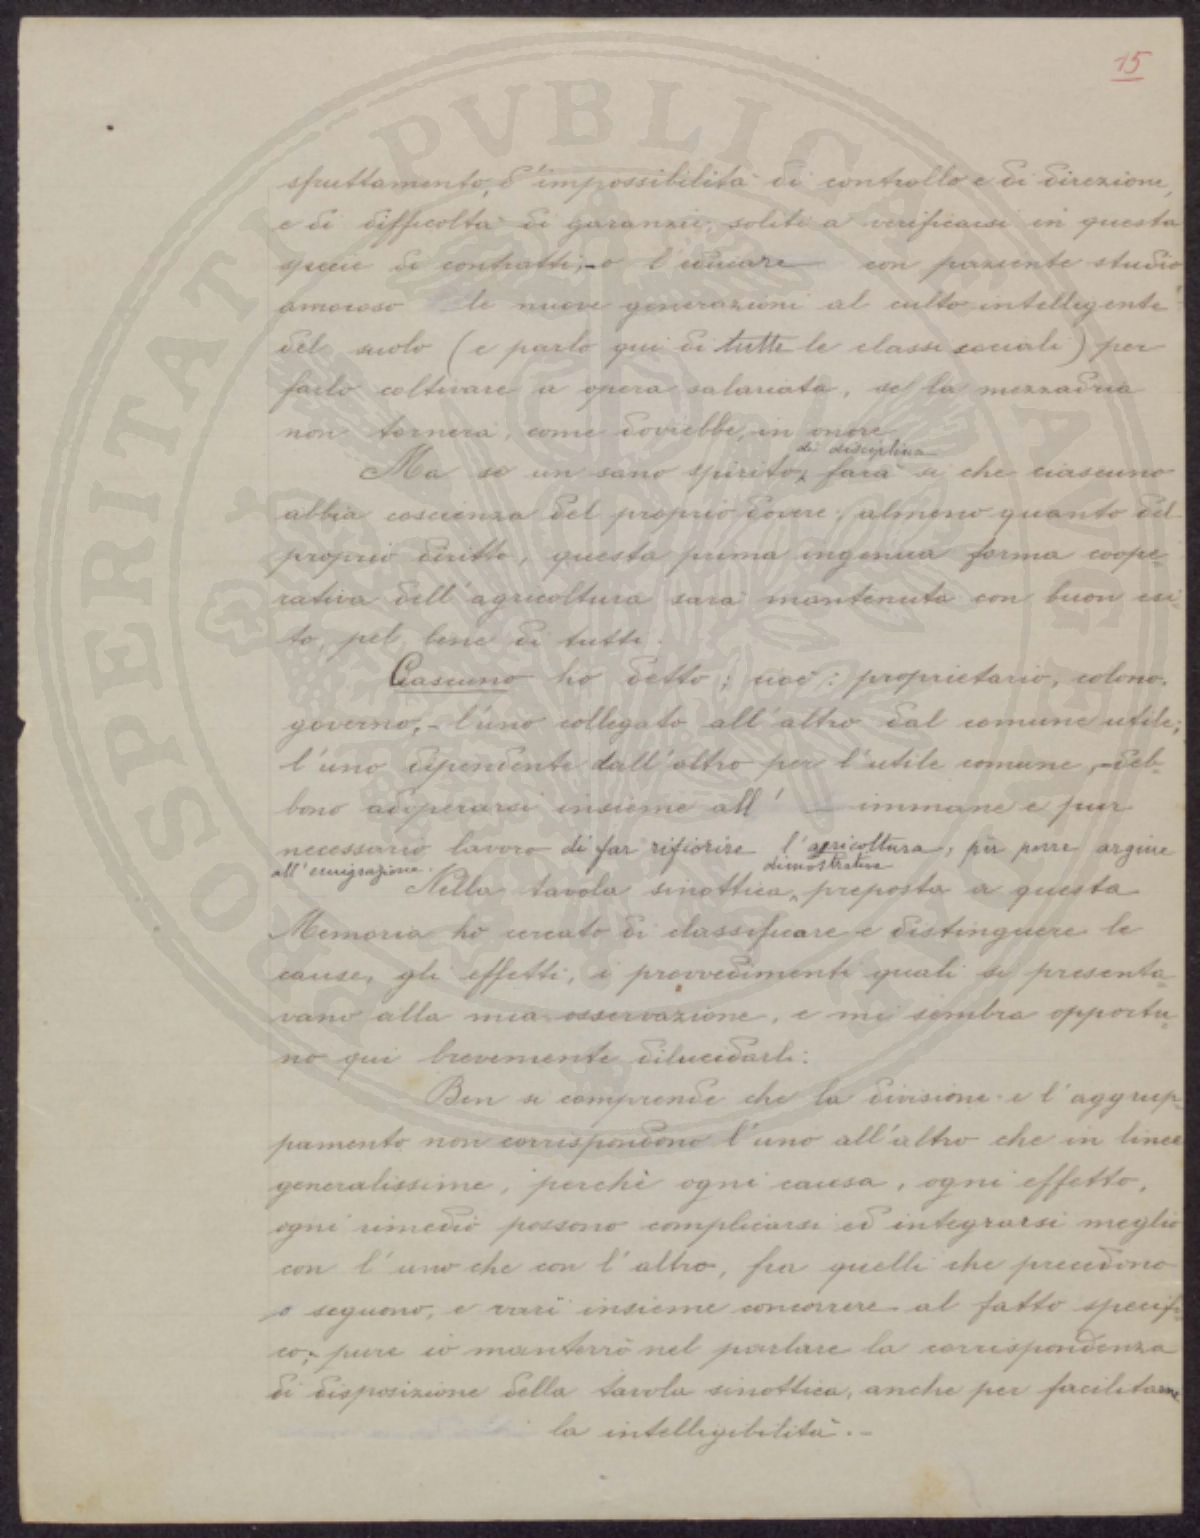 15
sfruttamento, d'impossibilità di controllo e di direzione,
e di difficoltà di garanzie, soliti a verificarsi in questa
specie di contratti; - o l'educare con paziente studio
amoroso le nuove generazioni al culto intelligente
del suolo (e parlo qui di tutte le classi sociali) per
farlo coltivare a opera salariata, se la mezzadria
non tornerà, come dovrebbe, in onore.
di disciplina
Ma se un sano spirito, farà sì che ciascuno
abbia coscienza del proprio dovere, almeno quanto del
proprio diritto, questa prima ingenua forma coope-
rativa dell'agricoltura sarà mantenuta con buon esi-
to, pel bene di tutti.
Ciascuno ho detto; cioè: proprietario, colono,
governo, - l'uno collegato all'altro dal comune utile;
l'uno dipendente dall'altro per l'utile comune, - deb-
bono adoperarsi insieme all' immane e pur
necessario lavoro di far rifiorire l'agricoltura, per porre argine
all'emigrazione.
dimostrativa
Nella tavola sinottica, preposta a questa
Memoria ho cercato di classificare e distinguere le
cause, gli effetti, i provvedimenti quali si presenta-
vano alla mia osservazione, e mi sembra opportu-
no qui brevemente dilucidarli:
Ben si comprende che la divisione e l'aggrup-
pamento non corrispondono l'uno all'altro che in linee
generalissime, perchè ogni causa, ogni effetto,
ogni rimedio possono complicarsi ed integrarsi meglio
con l'uno che con l'altro, fra quelli che precedono
o seguono, e varî insieme concorrere al fatto specifi-
co; pure io manterrò nel parlare la corrispondenza
di disposizione della tavola sinottica, anche per facilitarne
la intelligibilità. -
PROSPERITATI PVBLICAE AVGENDAE